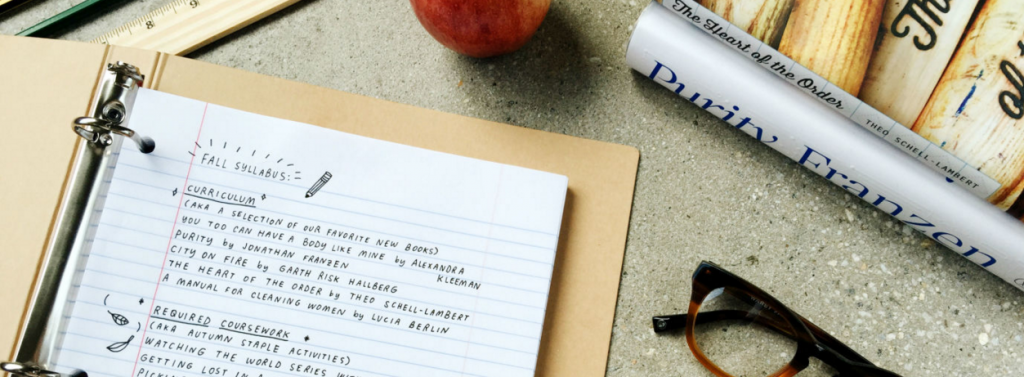 FALL SYLLABUS:
CURRICULUM
(AKA A SELECTION OF OUR FAVORITE NEW BOOKS)
YOU TOO CAN HAVE A BODY LIKE MINE by ALEXANDRA KLEEMAN
PURITY by JONATHAN FRANZEN
CITY ON FIRE by GARTH RISK HALLBERG
THE HEART OF THE ORDER by THEO SCHELL-LAMBERT
A MANUAL FOR CLEANING WOMEN by LUCIA BERLIN
REQUIRED COURSEWORK
(AKA AUTUMN STAPLE ACTIVITIES)
WATCHING THE WORLD SERIES
GETTING LOST IN
The Heart of the Order THEO SCHELL-LAMBERT
Purity Franzen
The
of
8